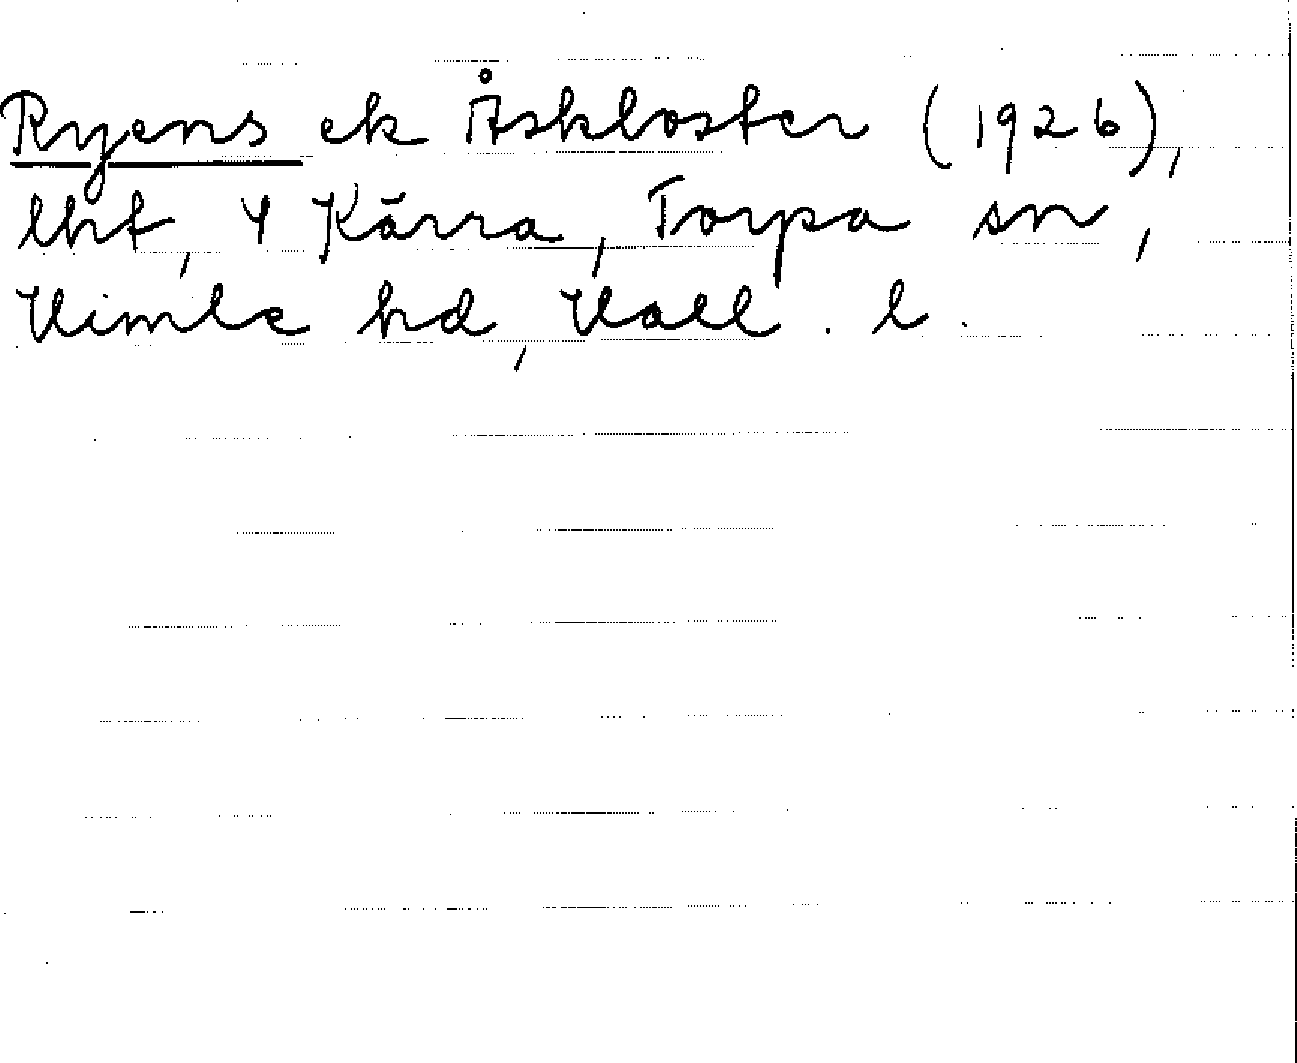 Ryens ek Åskloster (1926),
lht, Y Kärra, Torpa sn,
Himle hd, Hall. l.